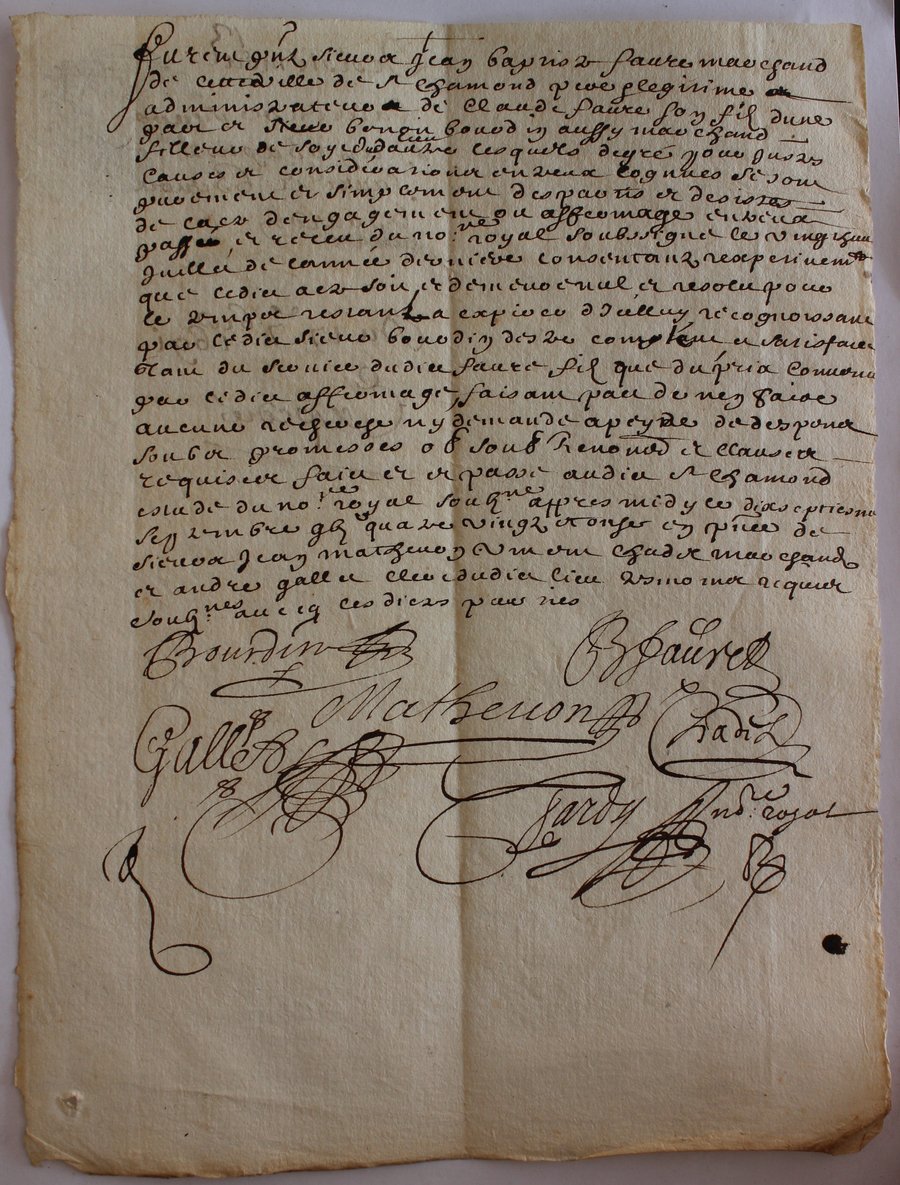 Furent p̃nts sieurs Jean baptiste faure marchand
de cette ville de st chamond pere & legitime
administrateur de Claude faure son fils dune
part et sieur bourdin aussy marchand
filleur de soye dautre lesquels degré pour justes
causes et considerations entreux cognues se sont
purement et simplement despartis et desistes
de lacte dengagement ou affermage entreux
passé et receu du nore royal soubsigné le vingt
Juillet de lannée derniere consentant respectivemt
que ledit acte soit et demeure nul et resolu pour
le temps restant a expirer dicelluy recognoissant
par ledit sieur bourdin destre comptant et satisfait
tant du service dudit faure fils que du prix convenu
par ledit affermage faisant pact de nen faire
aucune recherche ny demande a peyne de despens
soubz promesses obs soubs Renond et clauses
requises fait et passé audit st chamond
estude du nore royal soubne appres midy le dix septiesme
septembre gbj quatre vingt et onze en p̃nce de
sieurs Jean mathevon vincent chadet marchands
et andré gallet clerc dudit lieu tesmoins requis
soubnes avecq lesdites parties
Bourdin JB faure
Mathevon
Gallet Chadet
Jardy nore royal